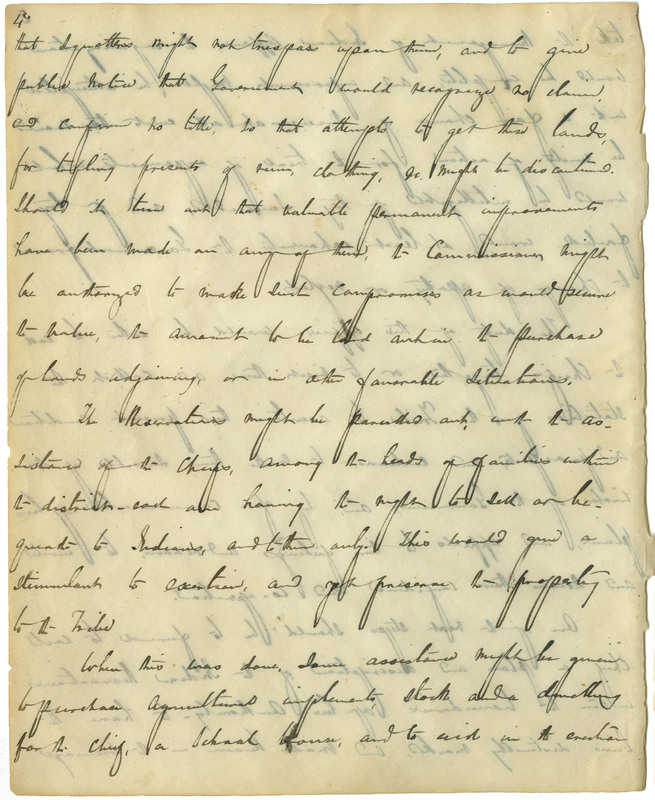 4
that squatters might not trespass upon them, and to give
public notice that Government would recognize no claim,
and confirm no title, so that attempts to get these lands,
for trifling presents of rum, clothing, &c. might be discontinued.
Should it turn out that valuable permanent improvements
have been made on any of them, the Commissioner might
be authorized to make such compromises as would secure
the value, the amount to be laid out in the purchase
of lands adjoining, or in other favorable situations.
The Reservation might be parcelled out, with the as-
sistance of the Chiefs, among the heads of families within
the district - each one having the right to sell or be-
queath to Indians, and to them only. This would give a
stimulant to exertion, and yet preserve the property
to the Tribe
When this was done, some assistance might be given
to purchase agricultural implements, stock and a dwelling
for the Chief, a School House, and to aid in the erection